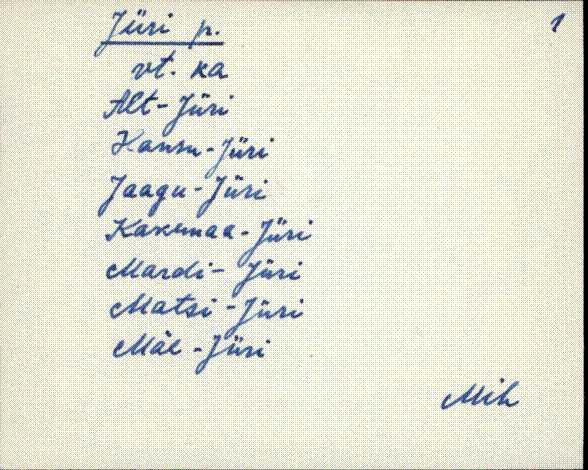 Jüri p.
1
vt. ka
Alt-Jüri
Hansu-Jüri
Jaagu-Jüri
Karemaa-Jüri
Mardi-Jüri
Matsi-Jüri
Mäe-Jüri
Mih